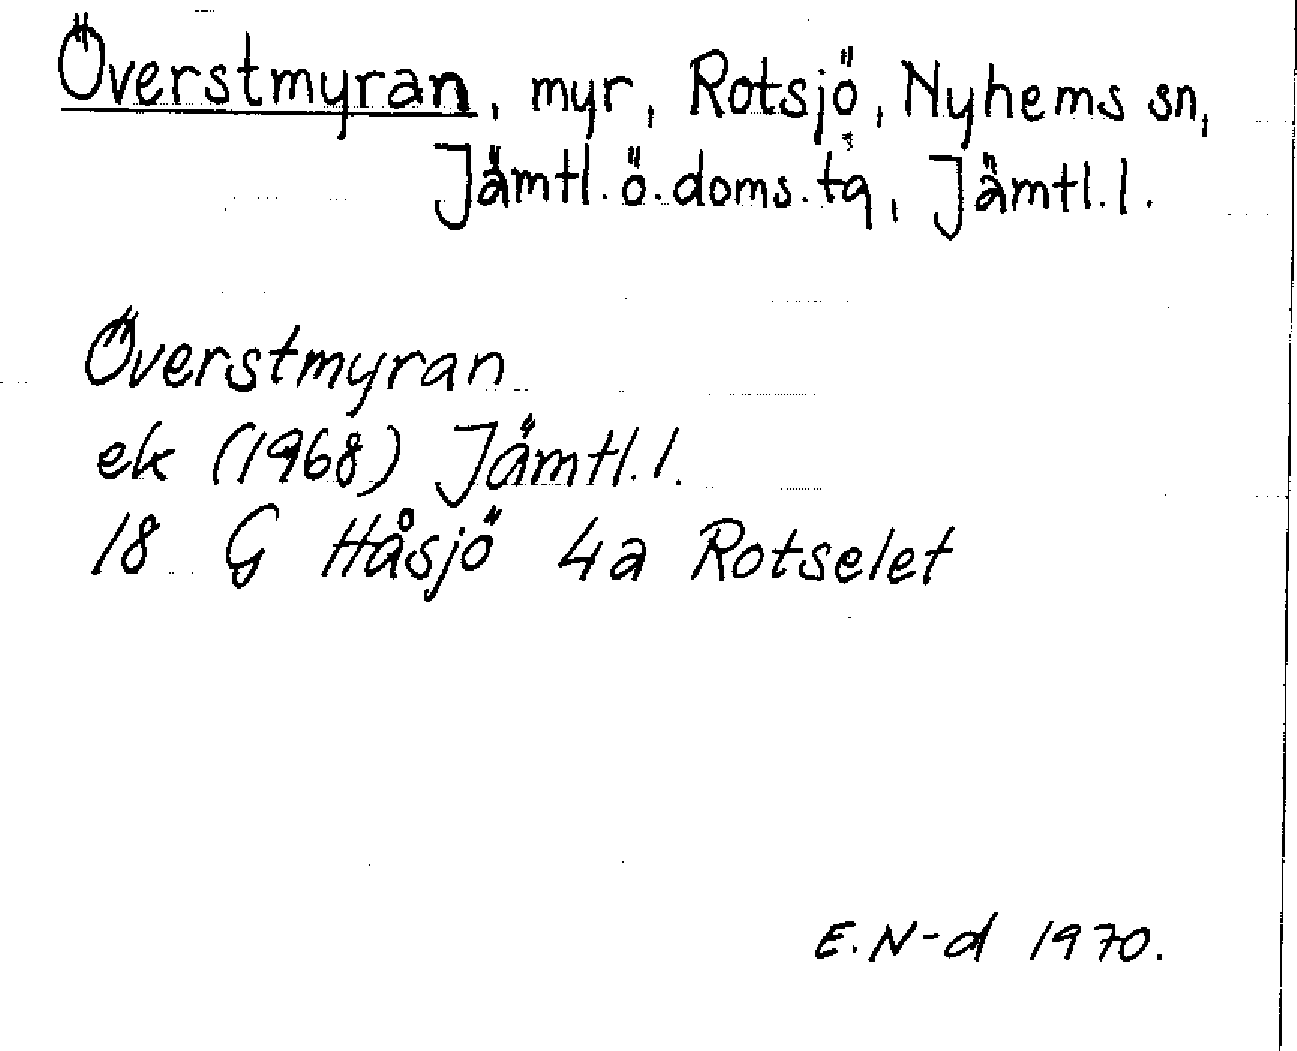 Överstmyran, myr, Rotsjö, Nyhems sn,
Jämtl. ö. doms. tg, Jämtl. l.
Överstmyran
ek (1968) Jämtl. l.
18 G Håsjö 4a Rotselet
E. N-d 1970.